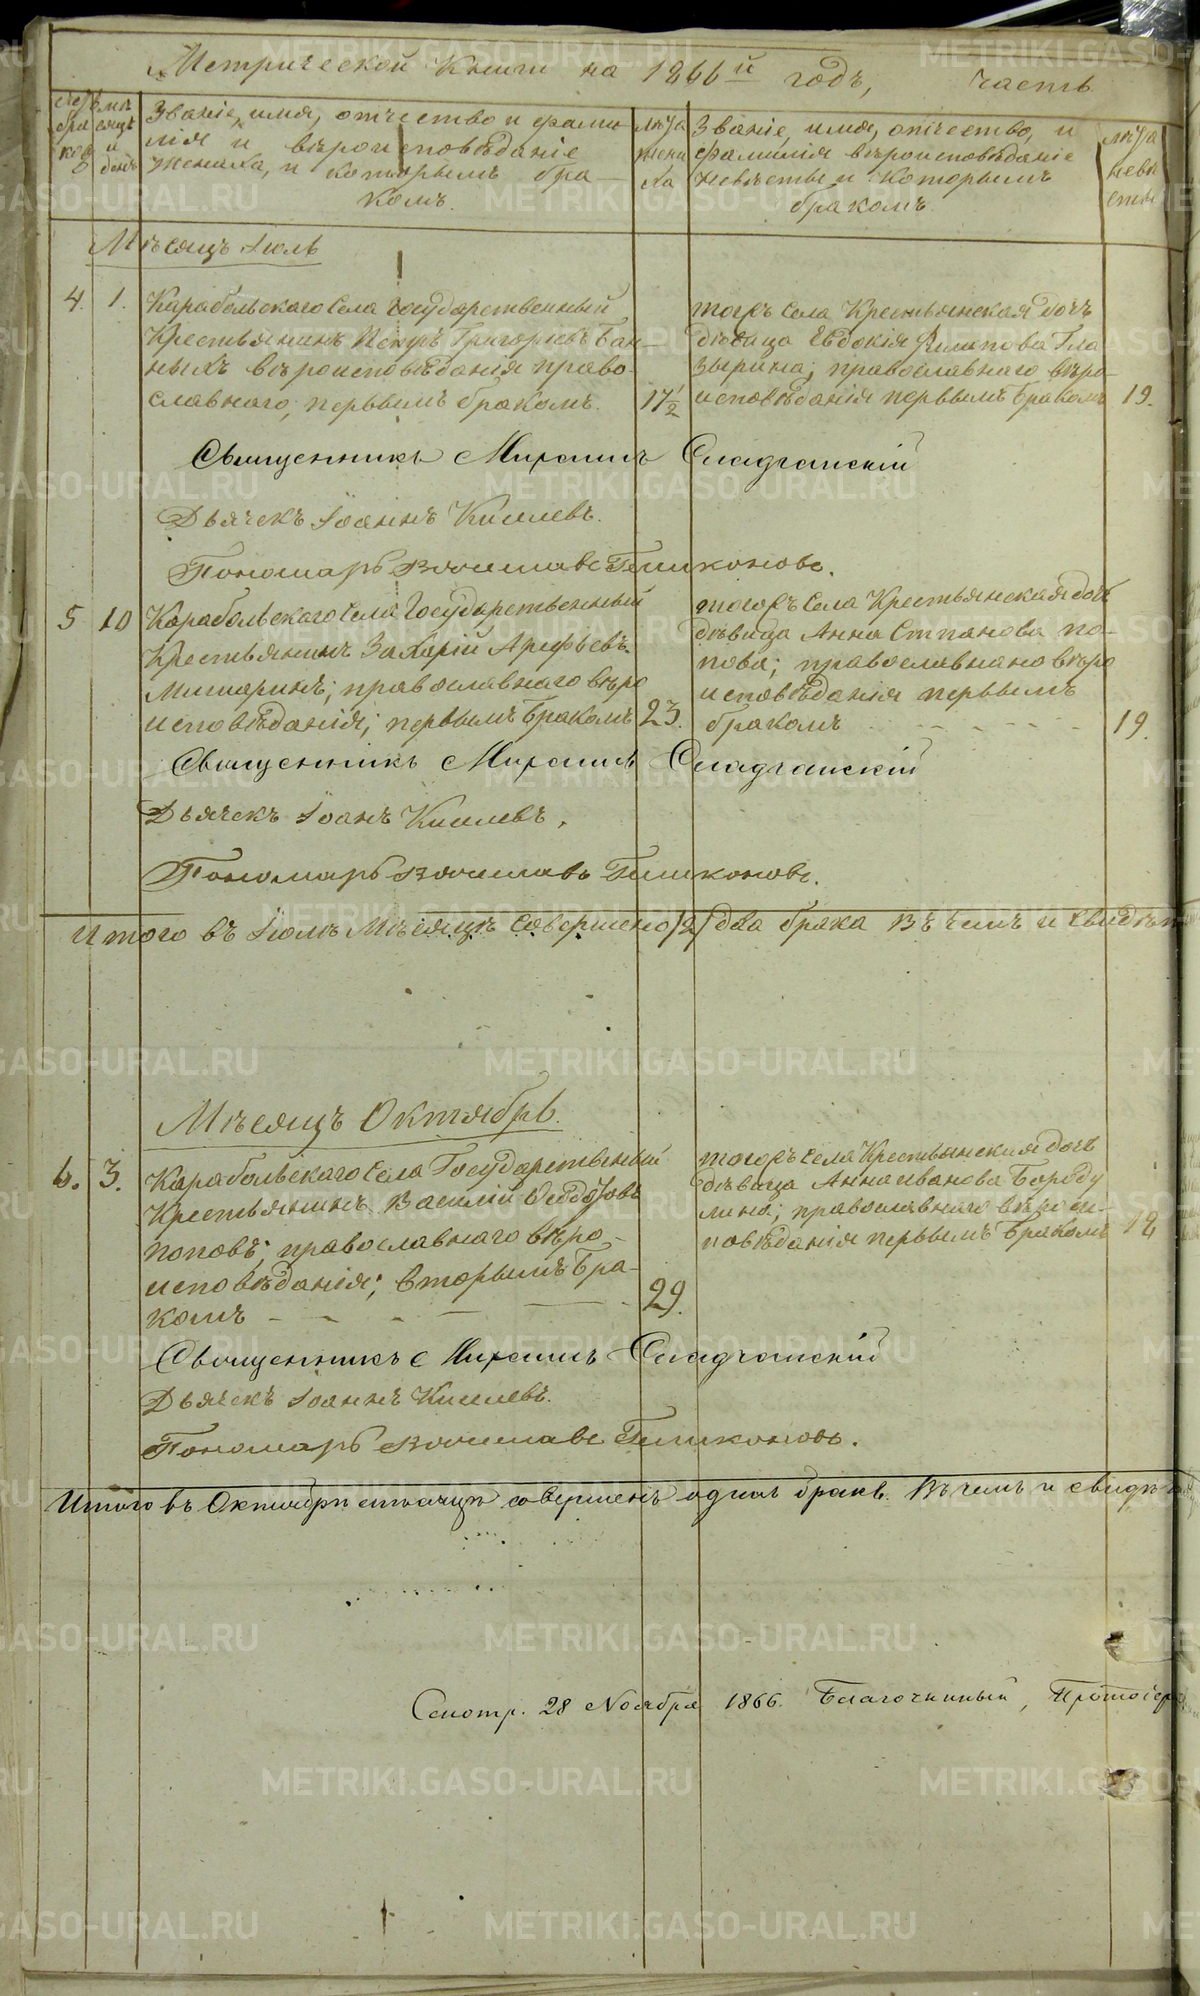 Метрической Книги на 1866й годъ, часть
Счетъ браковъ
Мѣсяцъ и день
Званіе, имя, отчество и фами-
лія и вѣроисповѣданіе
жениха, и которымъ бра-
комъ.
лѣта
жени
ха
Званіе, имя, отчество, и
фамилія вѣроисповѣданіе
невѣсты и которымъ
бракомъ.
лѣта
невѣ
сты
Мѣсяцъ Іюль
4. 1. Карабольскаго села государственный
Крестьянинъ Петръ Григорьевъ Бан-
ныхъ вѣроисповѣданія право-
славнаго, первымъ бракомъ. 17 1/2
тогоже села Крестьянская дочь
дѣвица Евдокія Филипова Гла
зырина; православнаго вѣро-
исповѣданія первымъ бракомъ 19.
Священникъ Михаилъ
Дьячекъ Іоаннъ Киселевъ.
Пономарь
5 10 Карабольскаго села Государственный
Крестьянинъ Захарій Арефьевъ
Мишаринъ; православнаго вѣро
исповѣданія; первымъ бракомъ 23.
тогоже села Крестьянская дочь
дѣвица Анна Стпанова по-
пова; православнаго вѣро
исповѣданія первымъ
бракомъ - - - - 19.
Священникъ Михаилъ
Дьячекъ Іоанъ Киселевъ.
Пономарь
Итого въ Іюлѣ Мѣсяцѣ Совершено /2/ два брака Въ чемъ и свидѣт
Мѣсяцъ Октябрь.
6. 3. Карабольскаго села Государственный
Крестьянинъ Василій Федотовъ
поповъ; православнаго вѣро-
исповѣданія; вторымъ бра-
комъ - - - - - 29.
тогоже села Крестьянская дочь
дѣвица Анна иванова Бороду
лина; православнаго вѣро ис-
повѣданія первымъ бракомъ
Священникъ Михаилъ
Дьячекъ Іоаннъ Киселевъ.
Пономарь
Итого въ Октябрѣ мѣсяцѣ совершенъ одинъ бракъ. Въ чемъ и свидѣт
Смотр. 28 Ноября 1866. Благочинный, Протоіер
METRIKI.GASO-URAL.RU